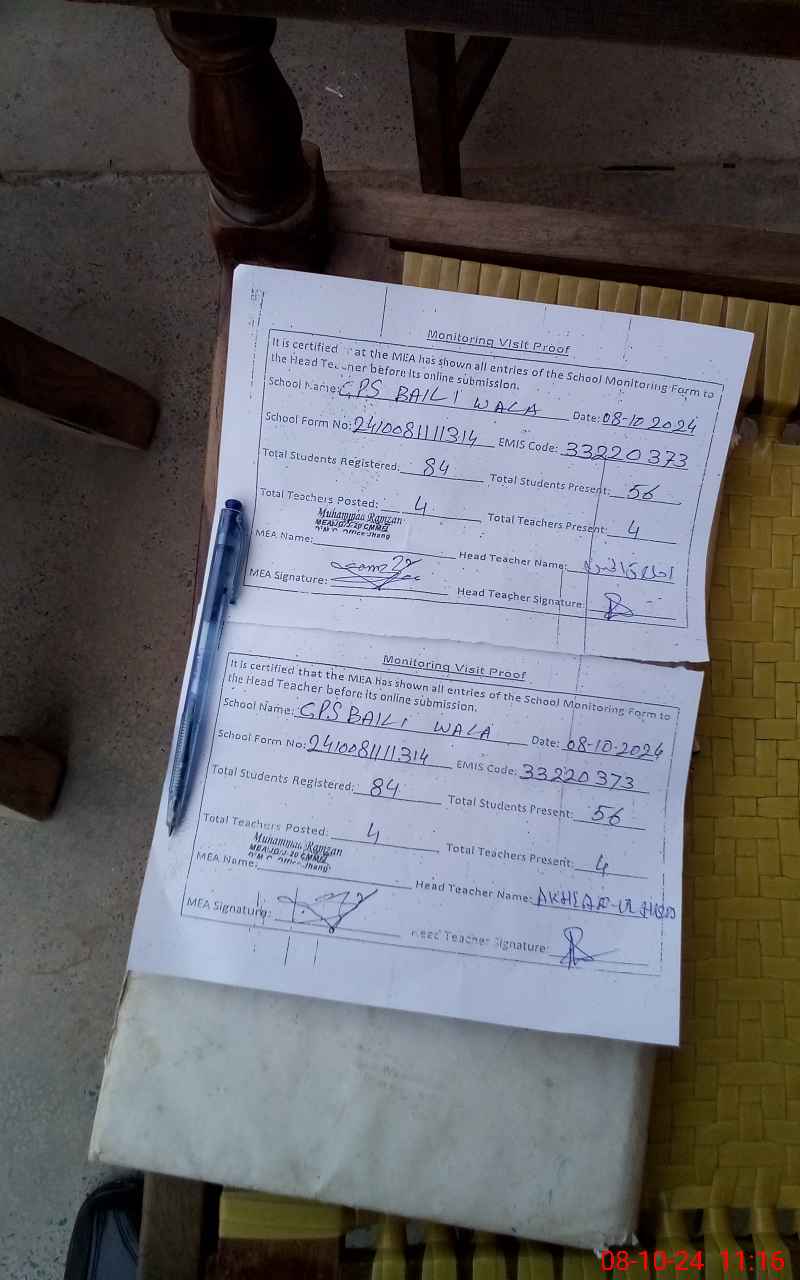 Monitoring Visit Proof
It is certified at the MEA has shown all entries of the School Monitoring Form to
the Head Teacher before its online submission.
School Name: GPS BAILI WALA Date: 08-10 2024
School Form No: 2410081111314 EMIS Code: 33220373
Total Students Registered: 84 Total Students Present: 56
Total Teachers Posted: 4 Total Teachers Present: 4
Muhammad Ramzan
MEA Name: Head Teacher Name:
MEA Signature: Head Teacher Signature:
Monitoring Visit Proof
It is certified that the MEA has shown all entries of the School Monitoring Form to
the Head Teacher before its online submission.
School Name: GPS BAILI WALA Date: 08-10-2024
School Form No: 2410081111314 EMIS Code: 33220373
Total Students Registered: 84 Total Students Present: 56
Total Teachers Posted: 4 Total Teachers Present: 4
Muhammad Ramzan
MEA Name: Head Teacher Name:
MEA Signature: Head Teacher Signature:
08-10-24 11:16